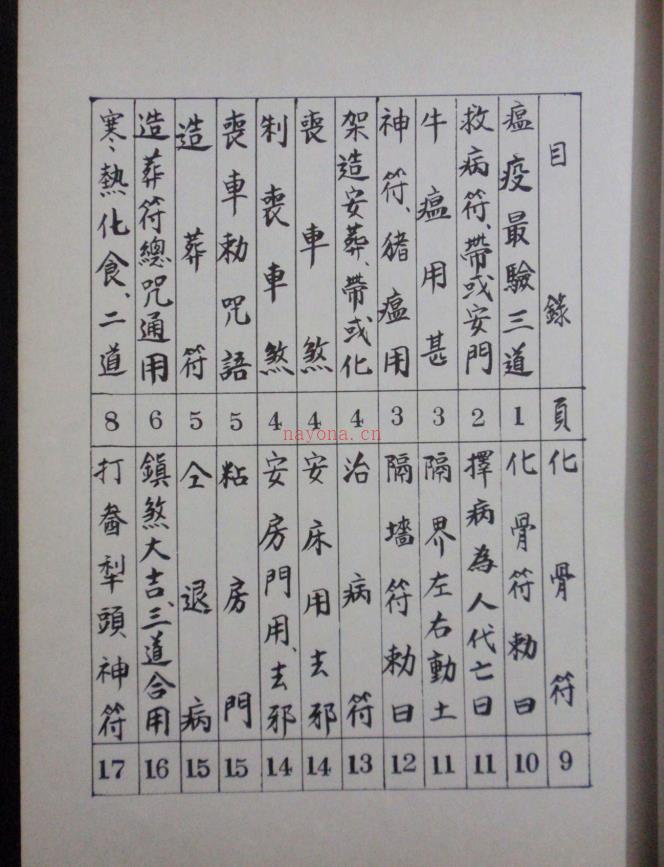 目錄 頁
瘟疫最驗三道 1
救病符、帶或安門 2
牛瘟用甚 3
神符、猪瘟用 3
架造安葬、帶或化 4
喪車煞 4
制喪車煞 4
喪車勅咒語 5
造葬符 5
造葬符總咒通用 6
寒熱化食、二道 8
化骨符 9
化骨符勅曰 10
擇病為人代亡曰 11
隔界左右動土 11
隔墻符勅曰 12
治病符 13
安床用去邪 14
安房門用、去邪 14
粘房門 15
仝退病 15
鎮煞大吉、三道合用 16
打畨犁頭神符 17
nayona.cn